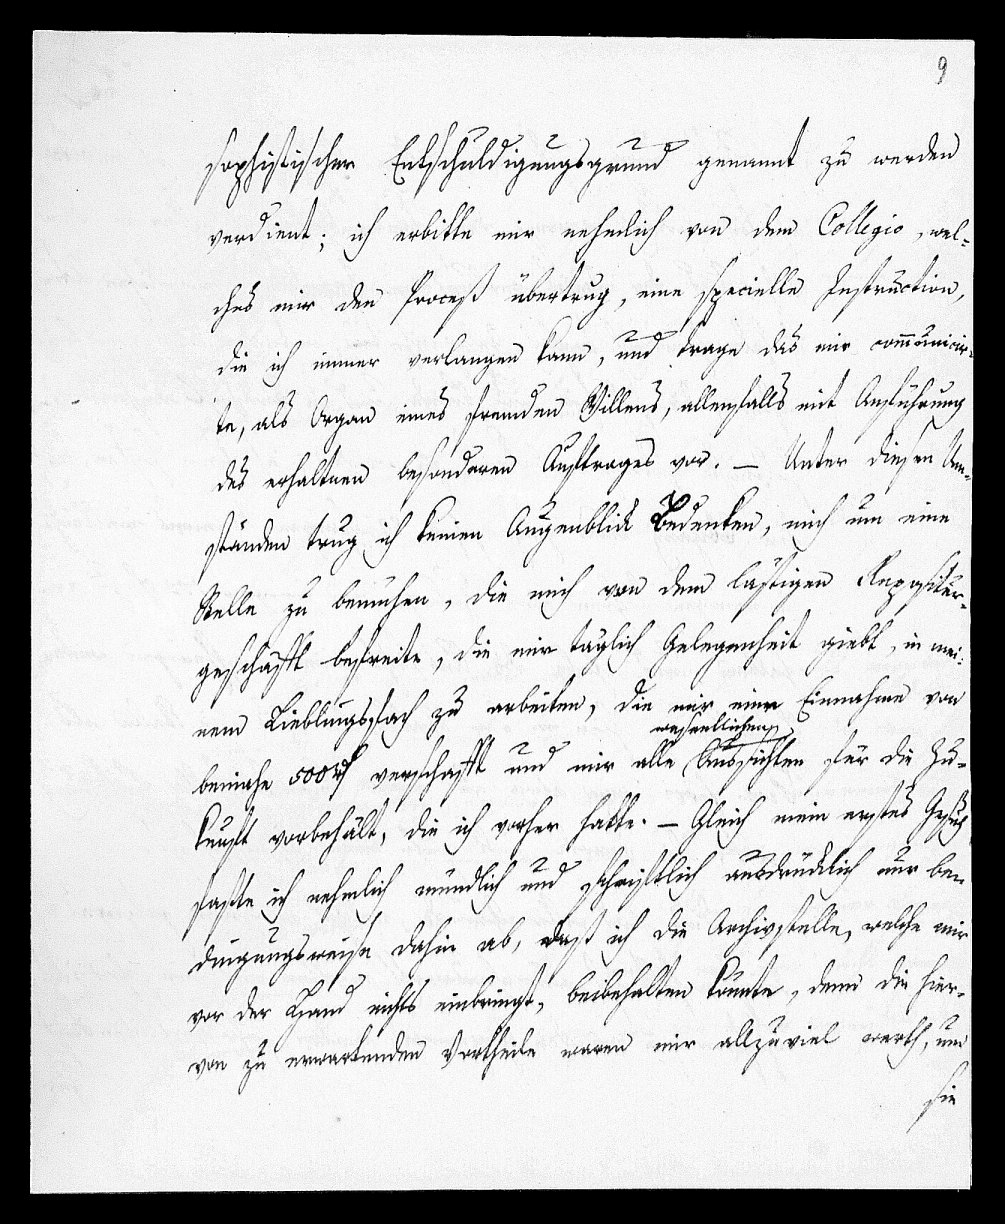 9
sophistischer Entschuldigungsgrund genannt zu werden
verdient; ich erbitte mir nehmlich von dem Collegio, wel-
ches mir den Proceß übertrug, eine specielle Instruction,
die ich immer verlangen kann, und trage das mir communicir-
te, als Organ eines fremden Willens, allenfalls mit Anführung
des erhaltnen besonderen Auftrages vor. — Unter diesen Um-
ständen trug ich keinen Augenblick Bedenken, mich um eine
Stelle zu bemühen, die mich von dem lästigen Repositur-
geschäfft befreite, die mir täglich Gelegenheit giebt, in mei-
nem Lieblingsfach zu arbeiten, die mir eine Einnahme von
wesentlichen
beinahe 500 rf verschafft und mir alle Aussichten für die Zu-
kunft vorbehält, die ich vorher hatte. — Gleich mein erstes Gesuch
faßte ich nehmlich mündlich und schriftlich ausdrücklich nur be-
dingungsweise dahin ab, daß ich die Archivstelle, welche mir
vor der Hand nichts einbringt, beibehalten könnte, denn die hier-
von zu erwartenden Vortheile waren mir allzuviel werth, um
sie